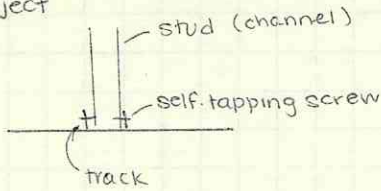 ject
stud (channel)
self-tapping screw
track